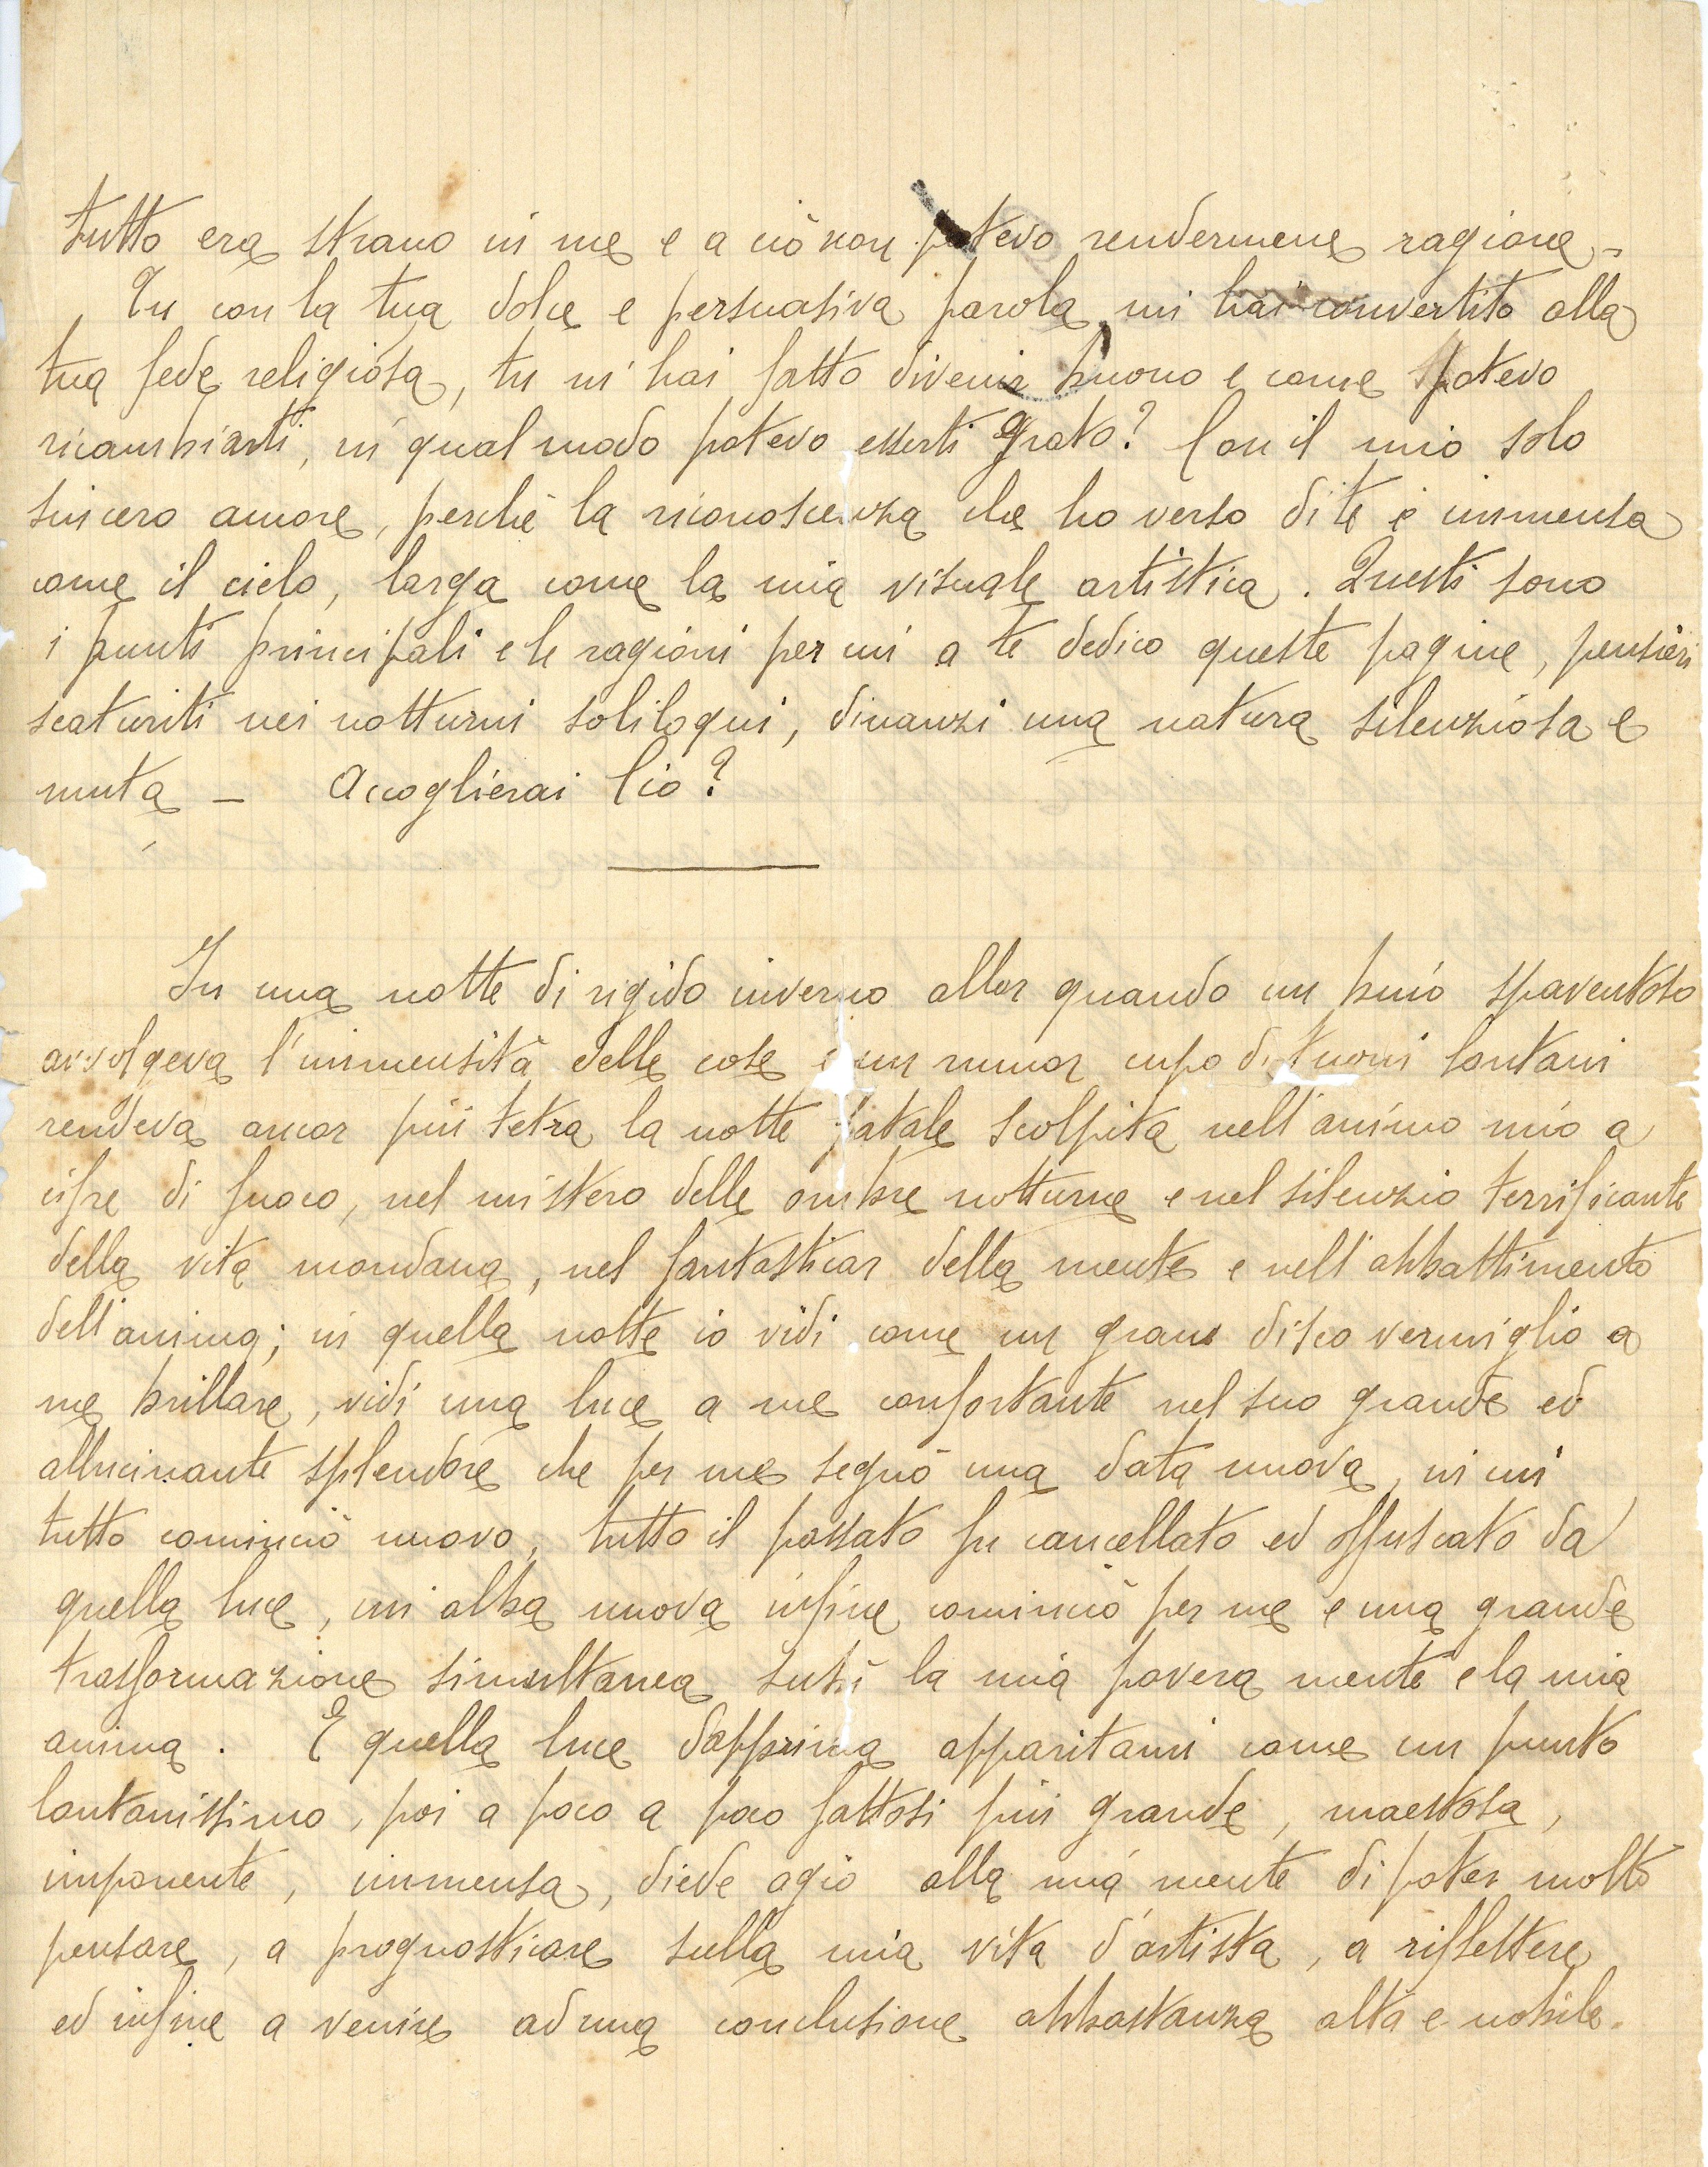 tutto era strano in me e a ciò non potevo rendermene ragione -
Tu con la tua dolce e persuasiva parola, mi hai convertito alla
tua fede religiosa, tu m'hai fatto divenir buono e come potevo
ricambiarti, in qual modo potevo esserti grato? Con il mio solo
sincero amore, perchè la riconoscenza che ho verso di te è immensa
come il cielo, larga come la mia visuale artistica. Questi sono
i punti principali e le ragioni per cui a te dedico queste pagine, pensieri
scaturiti nei notturni soliloqui, dinanzi una natura silenziosa e
muta - Accoglierai Ciò?
In una notte di rigido inverno allor quando un buio spaventoso
avvolgeva l'immensità delle cose e un rumor cupo di tuoni lontani
rendeva ancor più tetra la notte fatale scolpita nell'animo mio a
cifre di fuoco, nel mistero delle ombre notturne e nel silenzio terrificante
della vita mondana, nel fantasticar della mente e nell'abbattimento
dell'anima; in quella notte io vidi come un grande disco vermiglio a
me brillare, vidi una luce a me confortante nel suo grande ed
allucinante splendore che per me segnò una data nuova, in cui
tutto cominciò nuovo, tutto il passato fu cancellato ed offuscato da
quella luce, un'alba nuova infine cominciò per me e una grande
trasformazione simultanea subì la mia povera mente e la mia
anima. E quella luce dapprima apparitami come un punto
lontanissimo, poi a poco a poco fattosi più grande, maestosa,
imponente, immensa, diede agio alla mia mente di poter molto
pensare, a prognosticare sulla mia vita d'artista, a riflettere
ed infine a venire ad una conclusione abbastanza alta e nobile.